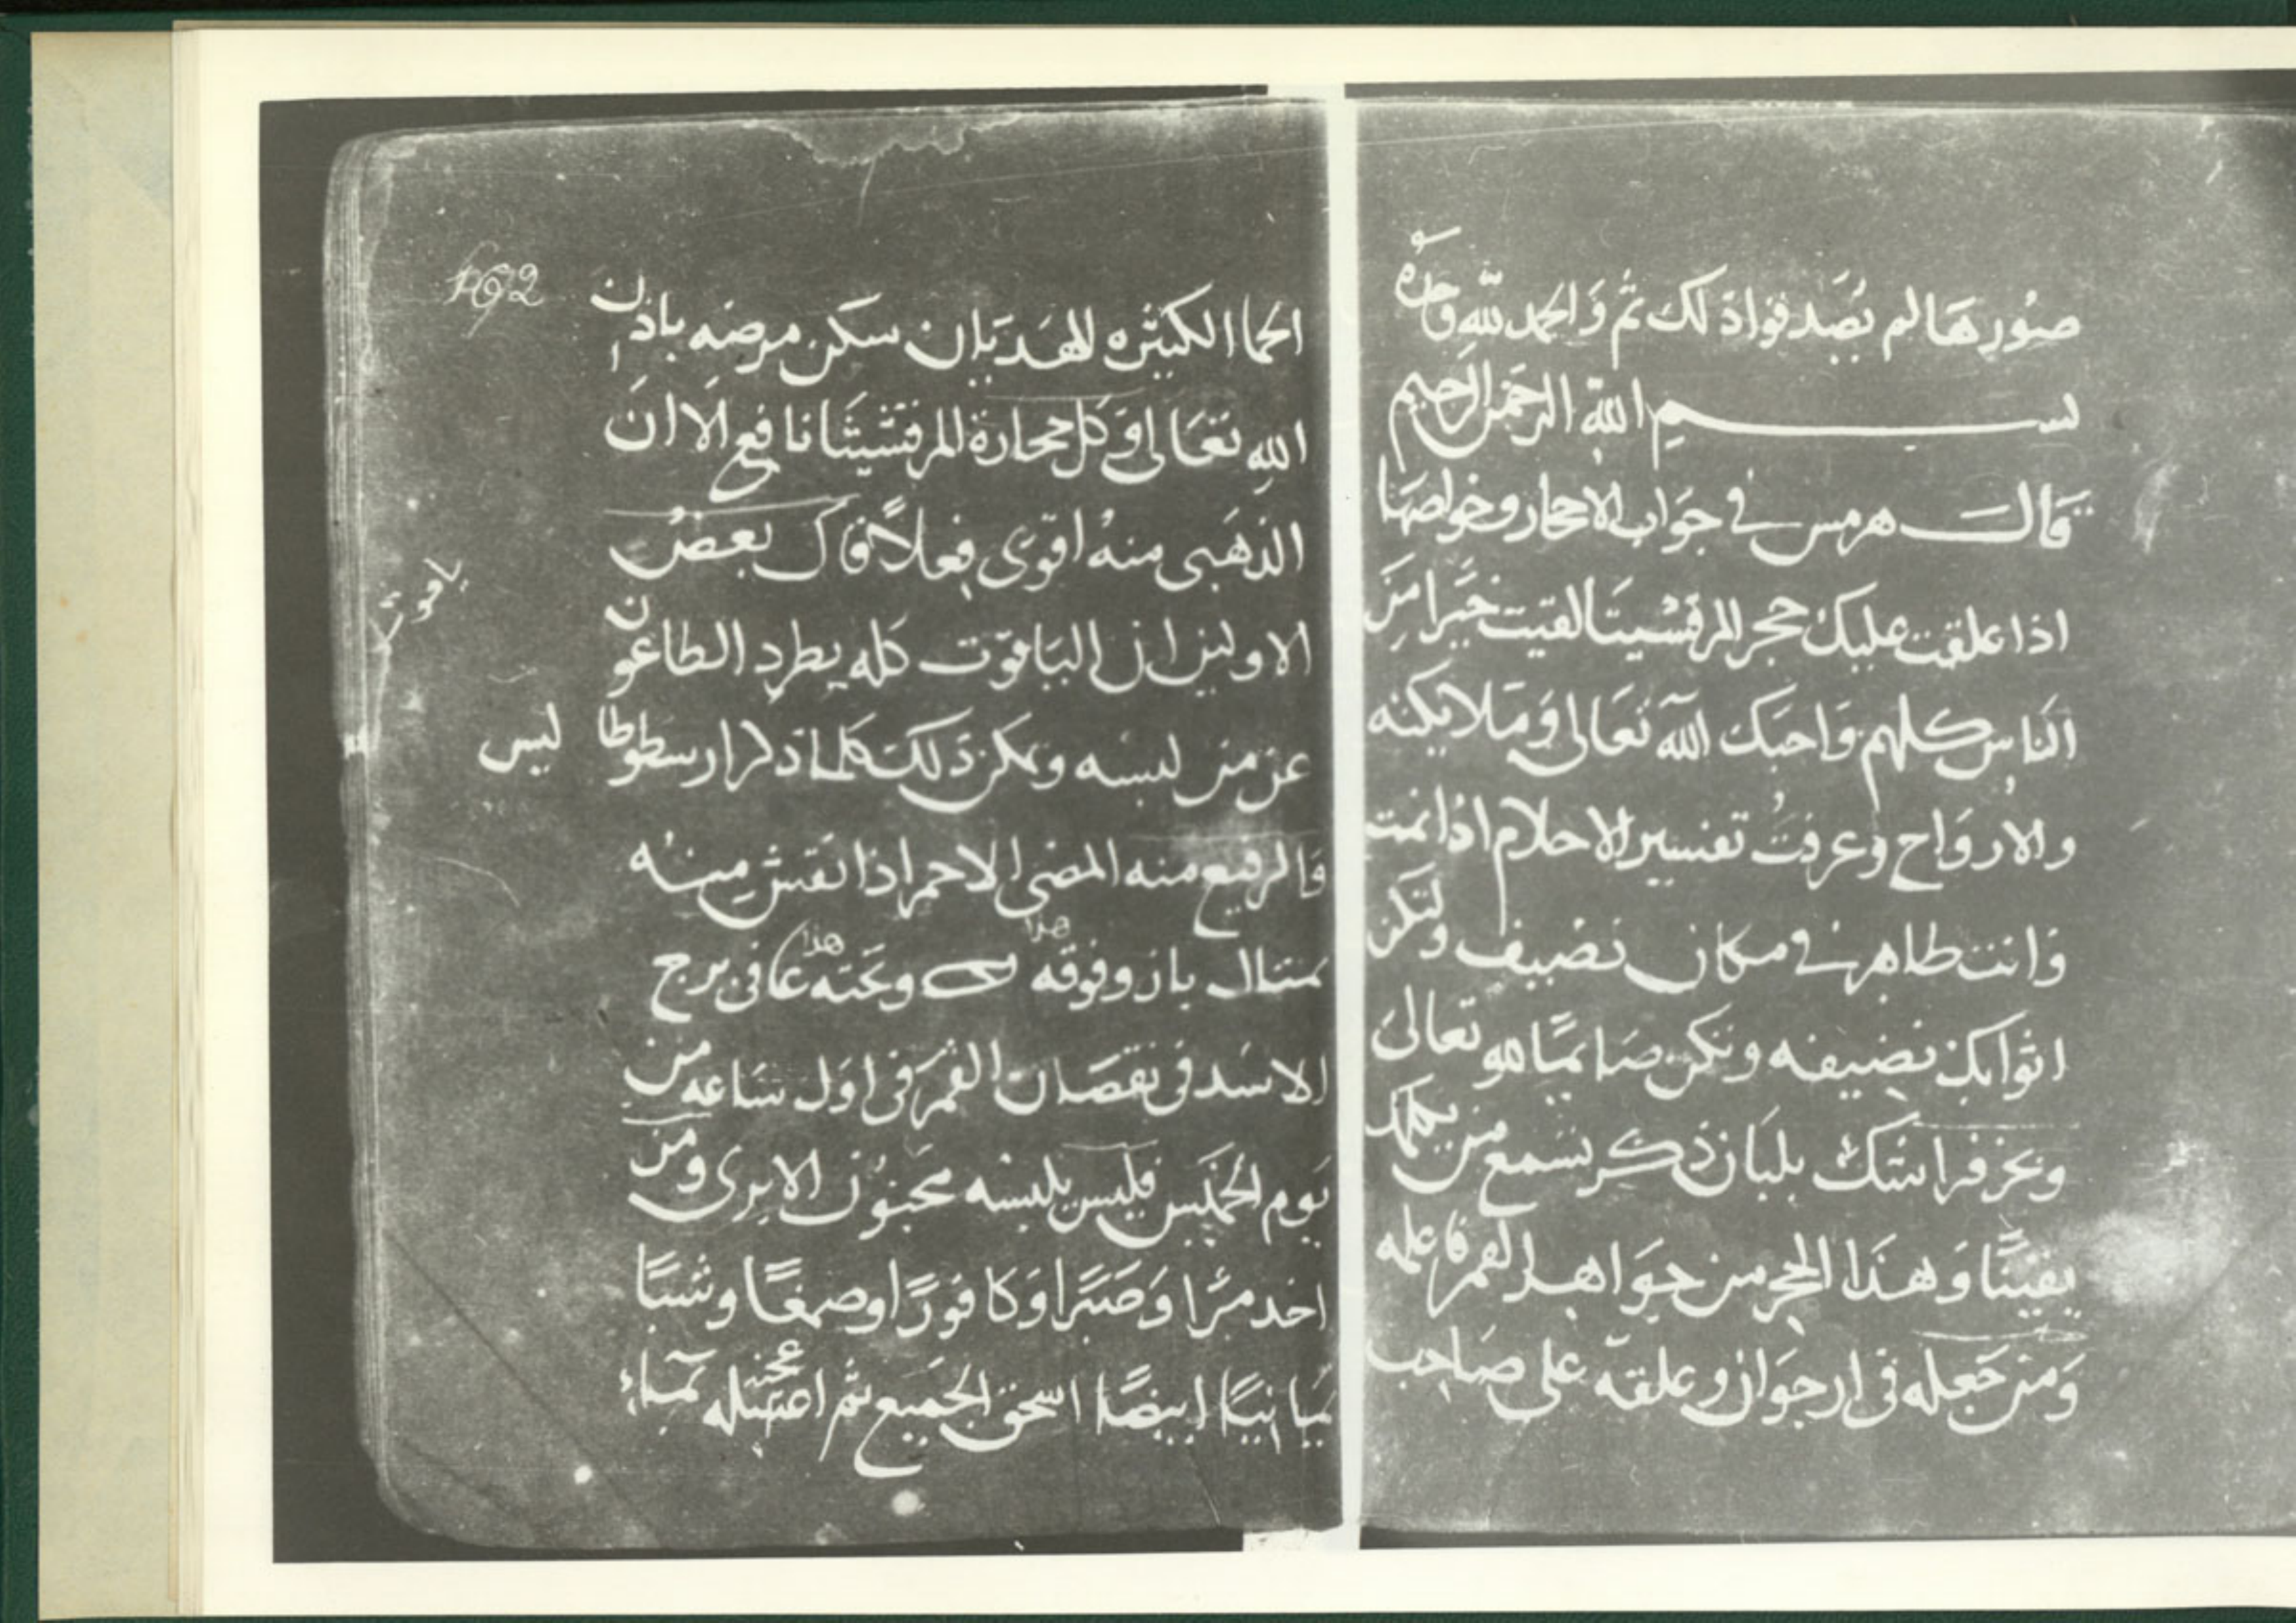 صورها لم يصد فواد لك ثم والحمد لله وحده
بسم الله الرحمن الرحيم
قال هرمس في جواب الاحجار وخواصها
اذا علقت عليك حجر المرقشيتا لقيت خيرا من
الناس كلهم واحبك الله تعالى وملايكته
والارواح وعرفت تفسير الاحلام اذا نمت
وانت طاهر في مكان نضيف ولتكن
اثوابك نضيفه وتكن صايما لله تعالى
وبخر فراشك بلبان ذكر تسمع من يكلمك
يقينا وهذا الحجر من جواهر القمر فاعلمه
ومن جعله في ارجوان وعلقه على صاحب
162
الحما الكثيره للهديان سكن مرضه باذن
الله تعالى وكل حجارة المرقشيثا نافع الا ان
الذهبى منه اقوى فعلا وقال بعض
الاولين ان الياقوت كله يطرد الطاعون
ياقوت
عن من لبسه ويكن ذلك كلما ذكر ارسطوطا ليس
فالرفيع منه المضى الاحمر اذا نقش منه
تمتال باز وفوقه هذا وتحته هذا فى برج
الاسد فى نقصان القمر فى اول ساعه من
يوم الخميس فليس يلبسه مجنون الا برى ومن
اخد مرا وصبرا وكافورا وصمغا وشبا
يمانيا ابيضا اسحق الجميع ثم اعجنه بماء